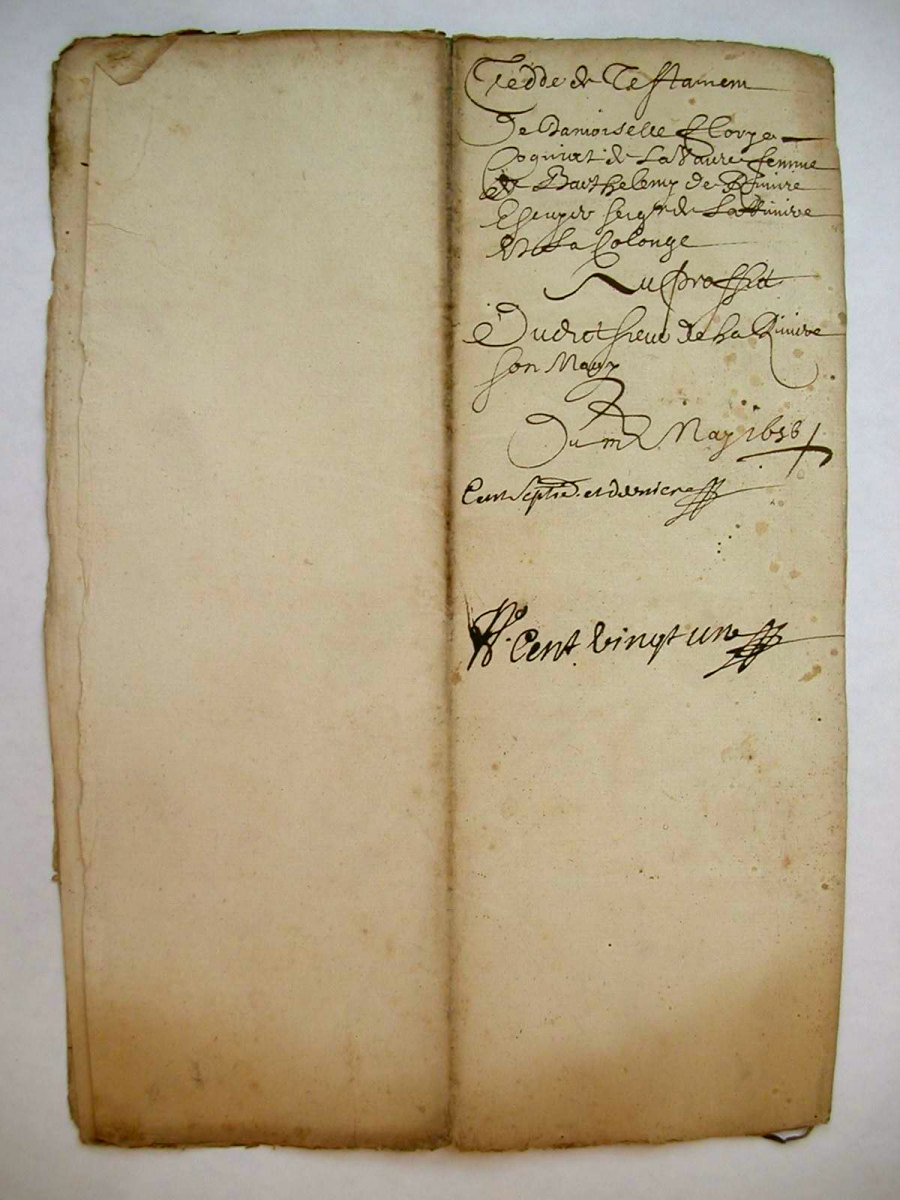 Cedde de Testamem
De Damoiselle Florye
Coguiet de La Faure femme
de Barthelemy de Riuire
Escuyer seigr de La Riuire
Et La Colonge
Au proffit
Dudict sieur de La Riuire
son Mary
Du m May 1656
Cent Septie. et derniere
Cent vingt une